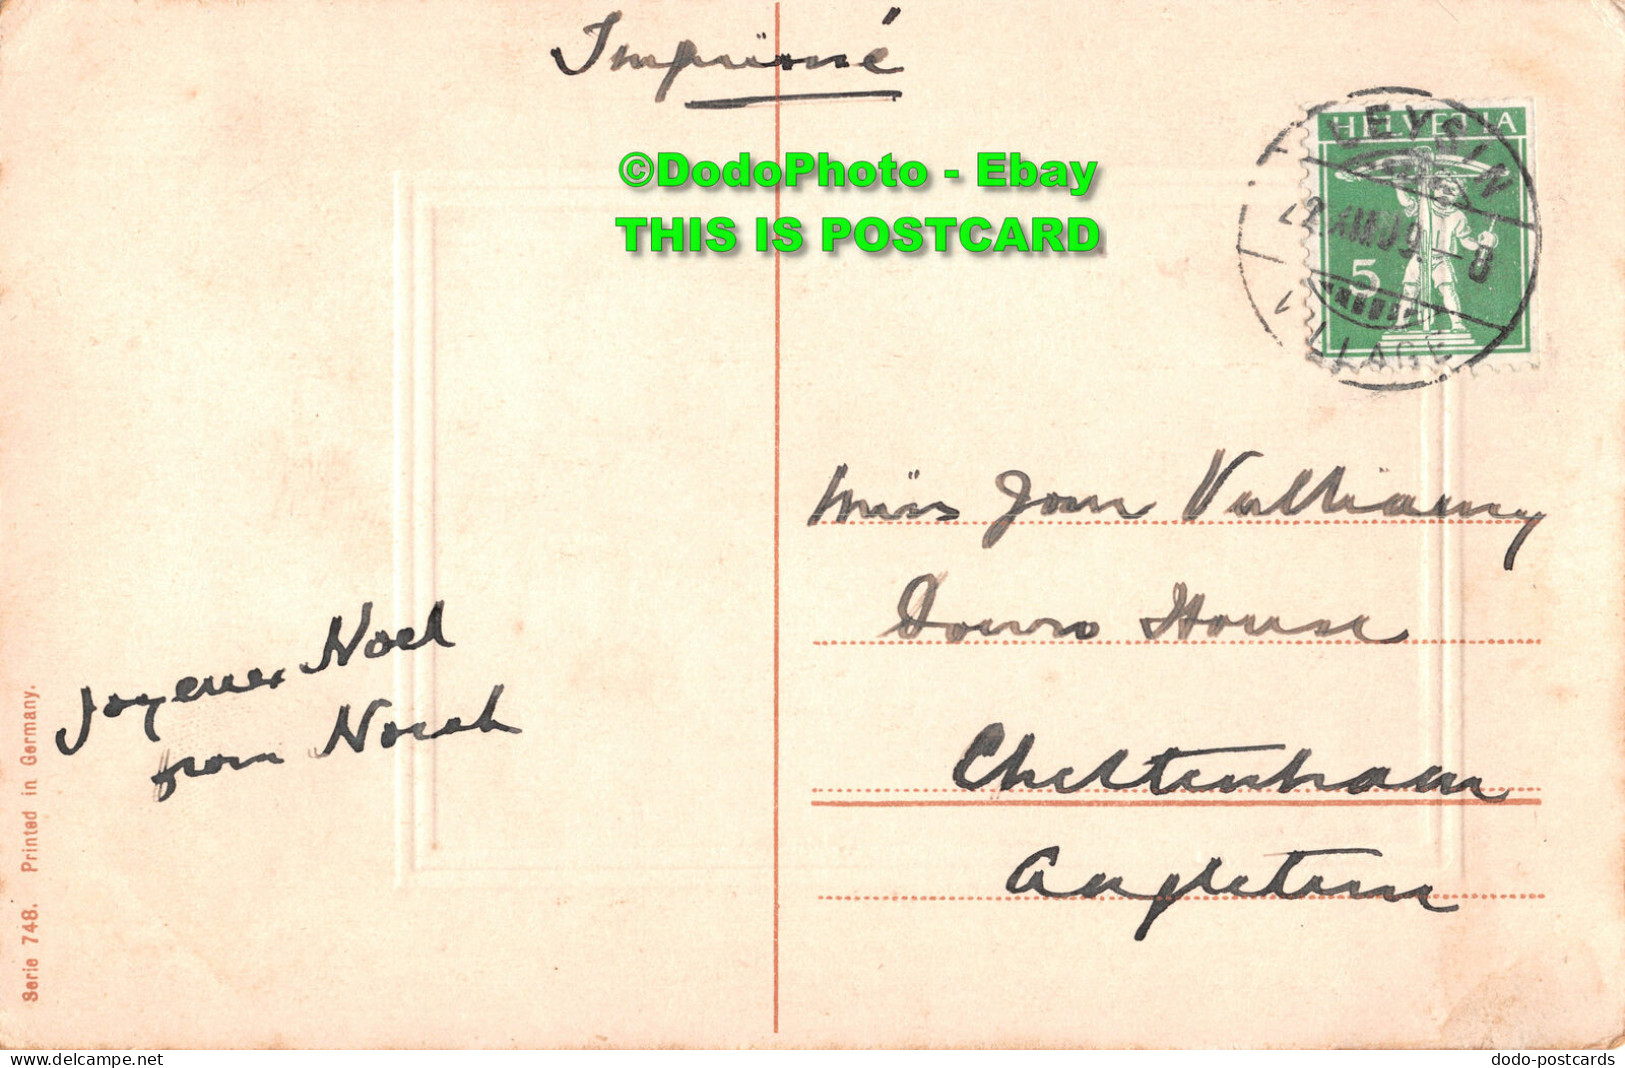 Imprimé
©DodoPhoto - Ebay
THIS IS POSTCARD
HELVETIA
5
LEYSIN
XII 09. - 8
VILLAGE
Miss Joan Vulliamy
Downs House
Cheltenham
Angleterre
Joyeux Noel
from Norah
Serie 748. Printed in Germany.
delcampe.net
dodo-postcards